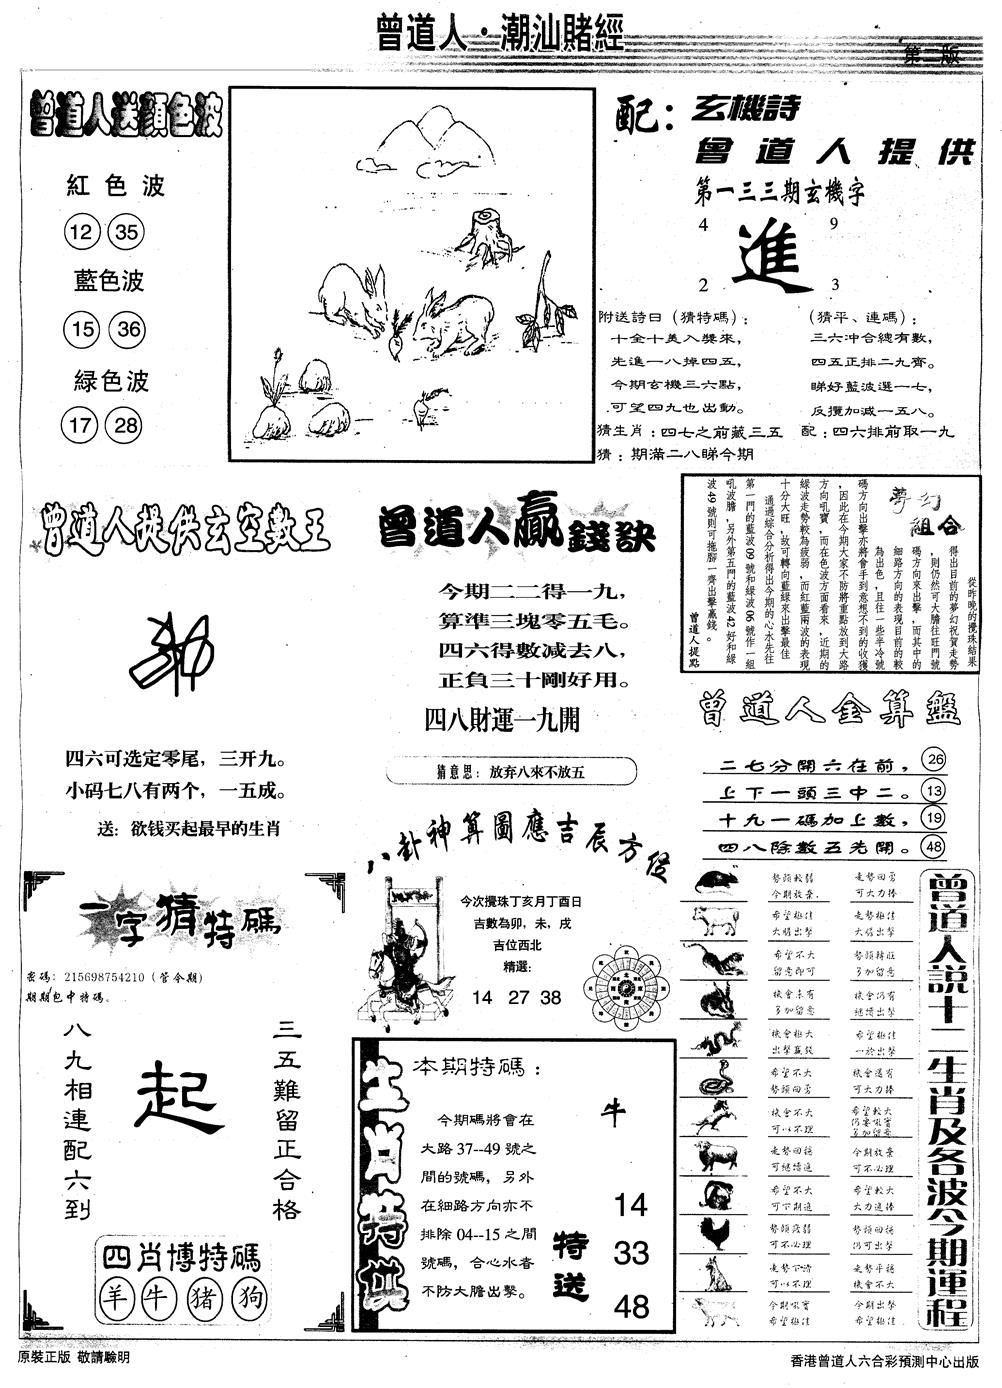 曾道人·潮汕賭經
第二版
曾道人送顏色波
紅色波
12 35
藍色波
15 36
緑色波
17 28
配：玄機詩
曾道人提供
第一三三期玄機字
4 9
進
2 3
附送詩曰（猜特碼）：
十全十美入獎來，
先進一八掉四五，
今期玄機三六點，
可望四九也出動。
（猜平、連碼）：
三六冲合總有數，
四五正排二九齊。
睇好藍波選一七，
反攬加减一五八。
猜生肖：四七之前藏三五 配：四六排前取一九
猜：期滿二八睇今期
曾道人提供玄空數王
四六可选定零尾，三开九。
小码七八有两个，一五成。
送：欲钱买起最早的生肖
曾道人贏錢訣
今期二二得一九，
算準三塊零五毛。
四六得數减去八，
正負三十剛好用。
四八財運一九開
猜意思：放弃八來不放五
夢幻組合
從昨晚的攪珠結果
得出目前的夢幻祝賀走勢
，則仍然可大膽往旺門號
碼方向來出擊，而其中的
細路方向的表現目前的較
為出色，且往一些半冷號
碼方向出擊亦將會手到意想不到的收獲
，因此在今期大家不防將重點放到大路
方向吼寶，而在色波方面看來，近期的
綠波走勢較為疲弱，而紅藍兩波的表現
十分大旺，故可轉向藍綠來出擊最佳
通過綜合分析得出今期的心水先往
第一門的藍波09號和綠波06號作一組
吼波膽，另外第五門的藍波42好和綠
波49號則可拖腳一齊出擊贏錢。
曾道人提點
曾道人金算盤
二七分開六在前，26
上下一頭三中二。13
十九一碼加上數，19
四八除數五先開。48
八卦神算圖應吉辰方位
今次攪珠丁亥月丁酉日
吉數為卯，未，戌
吉位西北
精選：
14 27 38
一字猜特碼
密碼：215698754210（管今期）
期期包中特碼。
三五難留正合格
起
八九相連配六到
四肖博特碼
羊 牛 豬 狗
生肖特供
本期特碼：
今期碼將會在
大路37--49號之
間的號碼，另外
在細路方向亦不
排除04--15之間
號碼，合心水者
不防大膽出擊。
牛
特送
14
33
48
曾道人説十二生肖及各波今期運程
勢頭較弱 走勢回勇
今期放棄． 可大力捧
希望極佳 走勢極佳
大膽出擊 大膽出擊
希望不大 勢頭轉旺
留意即可 多加留意
機會未有 機會仍有
多加留意 繼續出擊
機會極大 希望極佳
出擊贏錢 一於出擊
希望不大 機會還有
勢頭回勇 可大力捧
機會不大 希望較大
可以不理 仍要吼實
多加留意
走勢回穩 今期放棄
可繼續追 可不必理
希望不大 希望較大
可下期追 大力追捧
勢頭疲弱 勢頭回穩
可不必理 仍可出擊
走勢下滑 走勢平穩
可以不理 機會不大
今期吼實 今期出擊
希望極佳 希望極佳
原裝正版 敬請驗明
香港曾道人六合彩預測中心出版